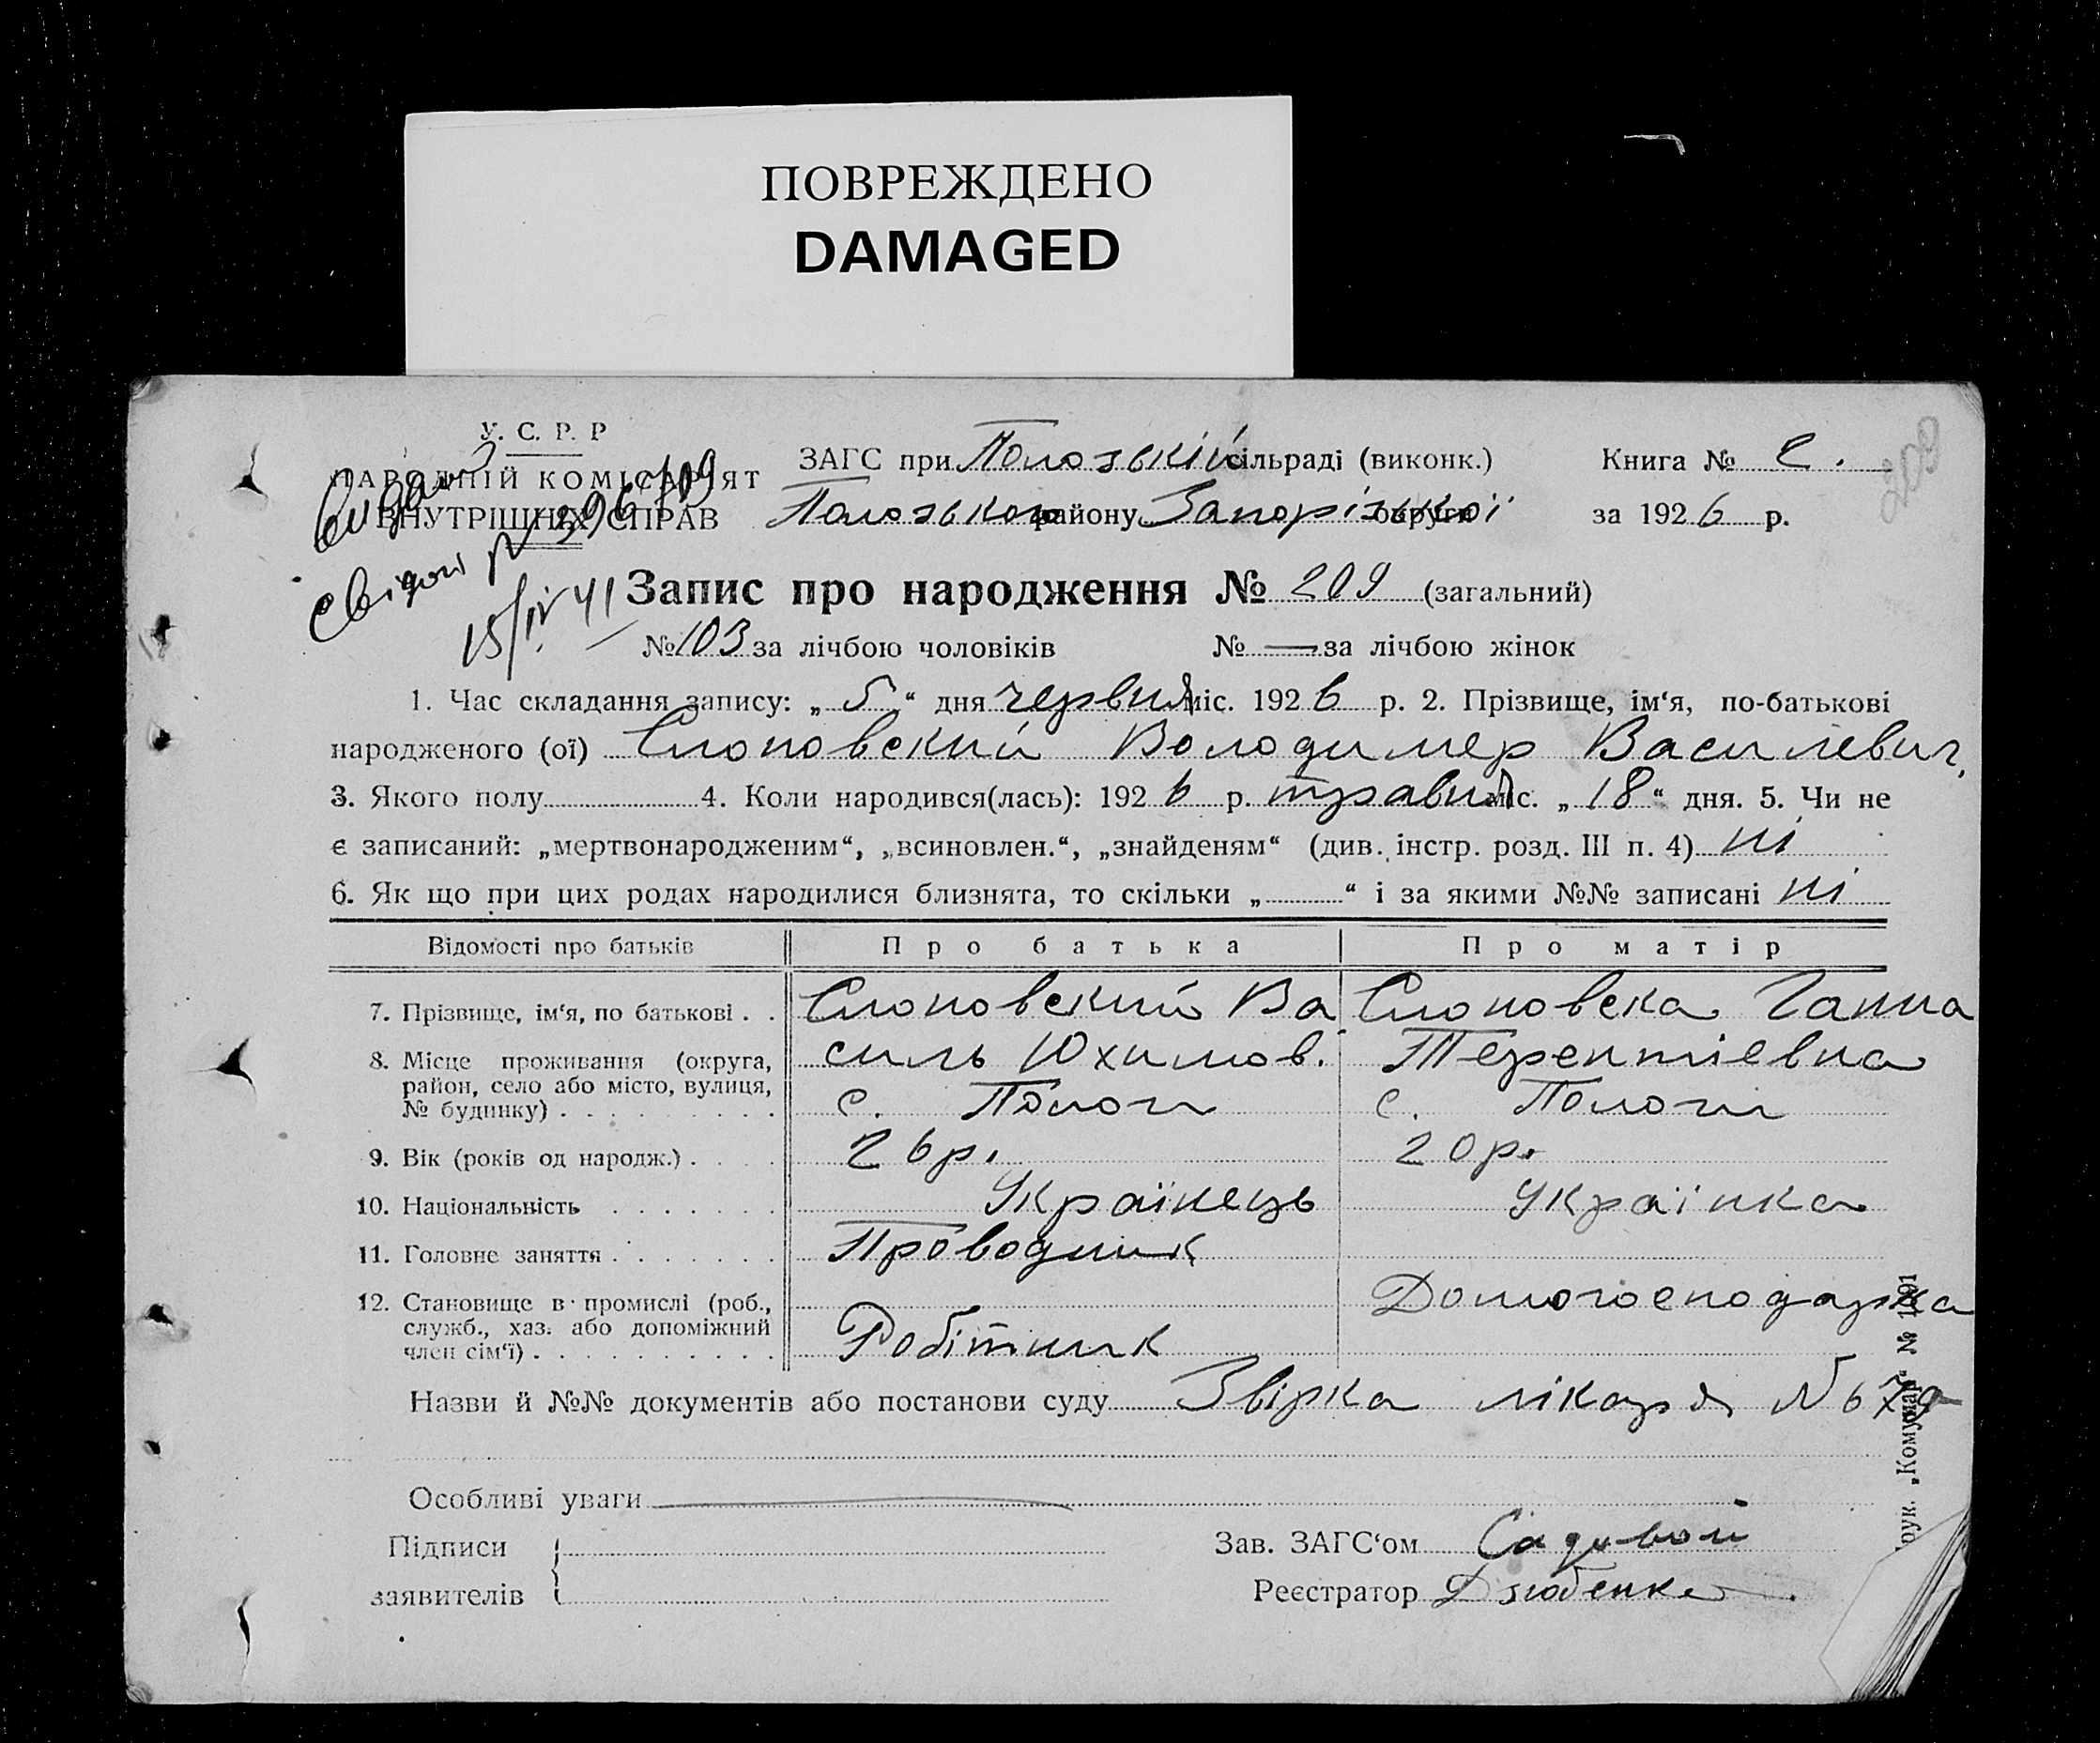 ПОВРЕЖДЕНО
DAMAGED
209
У. С. Р. Р
НАРОДНІЙ КОМІСАРІЯТ
ВНУТРІШНІХ СПРАВ
15/IV 41
ЗАГС при Полозькій сільраді (виконк.)
Книга №
Полозького району Запорізької округи
за 1926 р.
Запис про народження № 209 (загальний)
№ 103 за лічбою чоловіків № — за лічбою жінок
1. Час складання запису: „ 5 “ дня червня міс. 1926 р. 2. Прізвище, ім‘я, по-батькові
народженого (ої) Слоновский Володимер Василевич,
3. Якого полу 4. Коли народився(лась): 1926 р. травня міс. „ 18 “ дня. 5. Чи не
є записаний: „мертвонародженим“, „всиновлен.“, „знайденям“ (див. інстр. розд. III п. 4) ні
6. Як що при цих родах народилися близнята, то скільки „ “ і за якими №№ записані ні
Відомості про батьків Про батька Про матір
7. Прізвище, ім‘я, по батькові . . Слоновский Ва Слоновска Ганна
силь Юхимов. Терентіевна
8. Місце проживання (округа,
район, село або місто, вулиця,
№ будинку) . . . . . . . . . с. Пологи с. Пологи
9. Вік (років од народж.) . . . . 26 р. 20 р.
10. Національність . . . . . . . Українець Українка
11. Головне заняття . . . . . . . Проводник
12. Становище в промислі (роб.,
служб., хаз. або допоміжний
член сім‘ї) . . . . . . . . . . Робітник Домогосподарка
Назви й №№ документів або постанови суду Звірка лікаря №
Особливі уваги
Підписи
заявителів
Зав. ЗАГС‘ом Садовой
Реєстратор
рук. „Комунар“ №